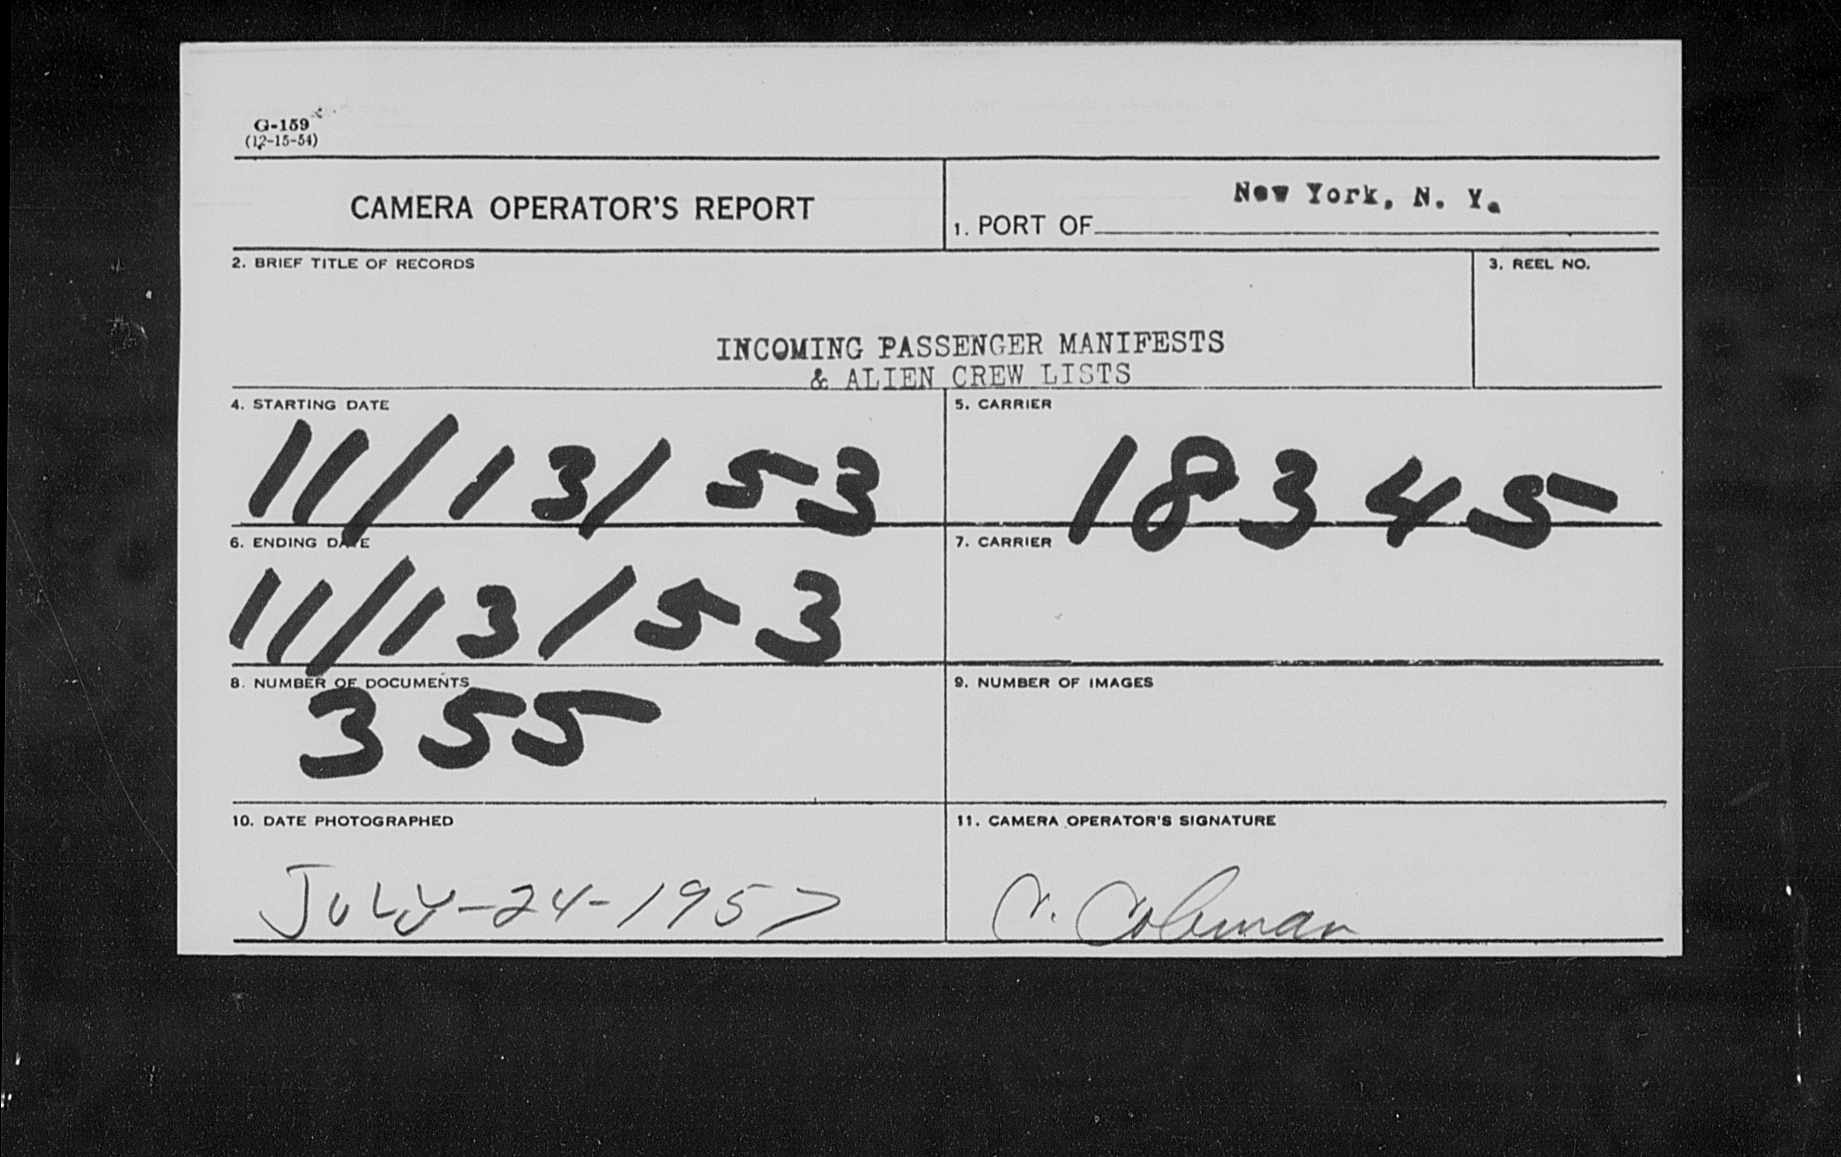 G-159
(12-15-54)
CAMERA OPERATOR'S REPORT
1. PORT OF New York, N. Y.
2. BRIEF TITLE OF RECORDS
3. REEL NO.
INCOMING PASSENGER MANIFESTS
& ALIEN CREW LISTS
4. STARTING DATE
11/13/53
5. CARRIER
18345
6. ENDING DATE
11/13/53
7. CARRIER
8. NUMBER OF DOCUMENTS
355
9. NUMBER OF IMAGES
10. DATE PHOTOGRAPHED
JULY-24-1957
11. CAMERA OPERATOR'S SIGNATURE
Coleman